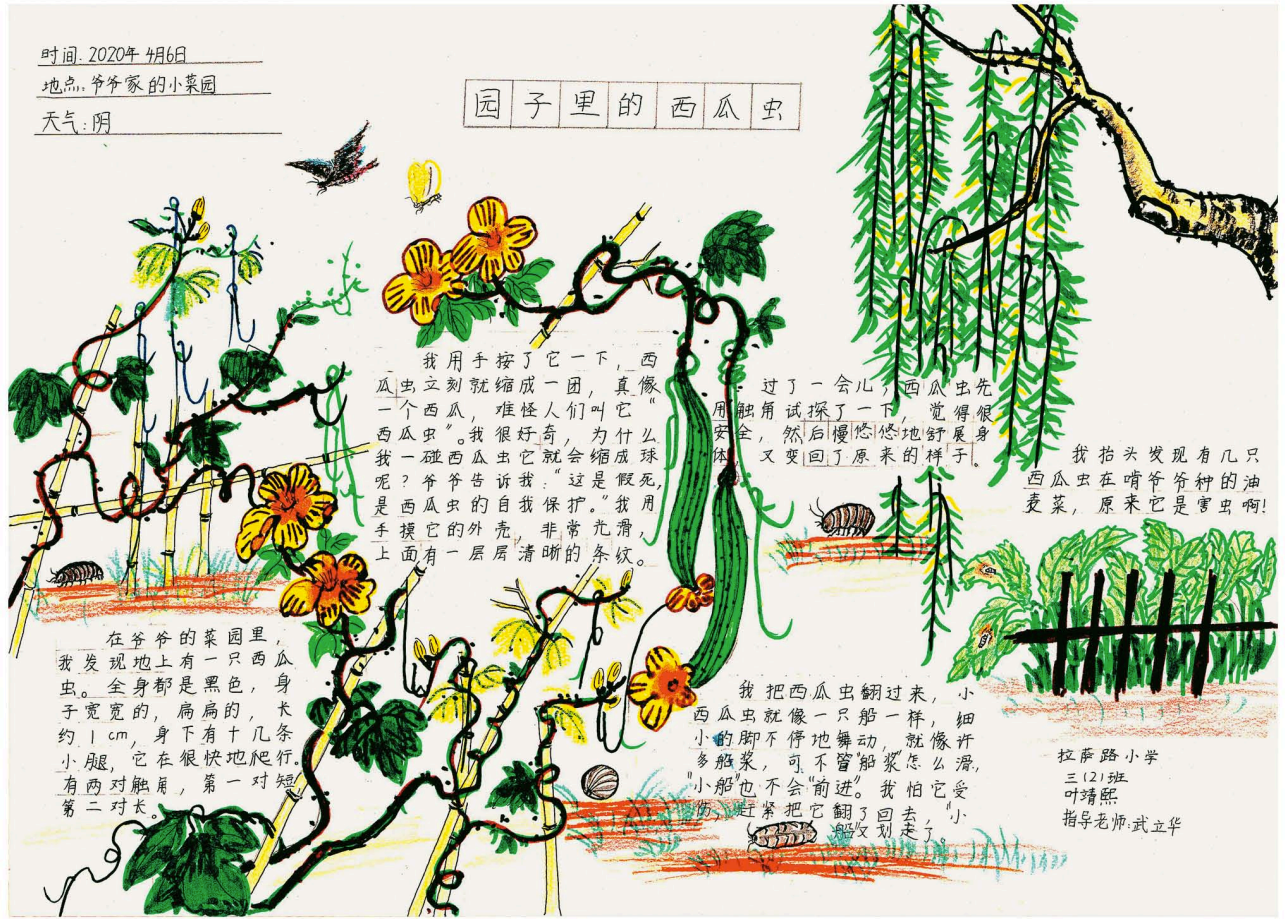 时间:2020年4月6日
地点:爷爷家的小菜园
天气:阴
园子里的西瓜虫
在爷爷的菜园里,
我发现地上有一只西瓜
虫。全身都是黑色,身
子宽宽的,扁扁的,长
约1cm,身下有十几条
小腿,它在很快地爬行。
有两对触角,第一对短
第二对长。
我用手按了它一下,西
瓜虫立刻就缩成一团,真像
一个西瓜,难怪人们叫它“
西瓜虫”。我很好奇,为什么
我一碰西瓜虫它就会缩成球
呢?爷爷告诉我:“这是假死,
是西瓜虫的自我保护。”我用
手摸它的外壳,非常光滑,
上面有一层层清晰的条纹。
过了一会儿,西瓜虫先
用触角试探了一下,觉得很
安全,然后慢悠悠地舒展身
体,又变回了原来的样子。
我把西瓜虫翻过来,小
西瓜虫就像一只船一样,细
小的脚不停地舞动,就像许
多船桨,可不管“船桨”怎么滑,
“小船”也不会“前进”。我怕它受
伤,赶紧把它翻了回去,“小
船”又划走了。
我抬头发现有几只
西瓜虫在啃爷爷种的油
麦菜,原来它是害虫啊!
拉萨路小学
三(2)班
叶靖熙
指导老师:武立华